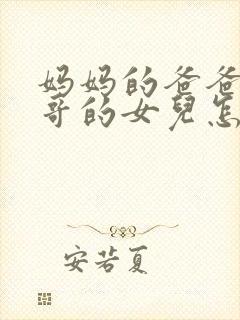 妈妈的爸爸
哥的女兒怎
安若夏